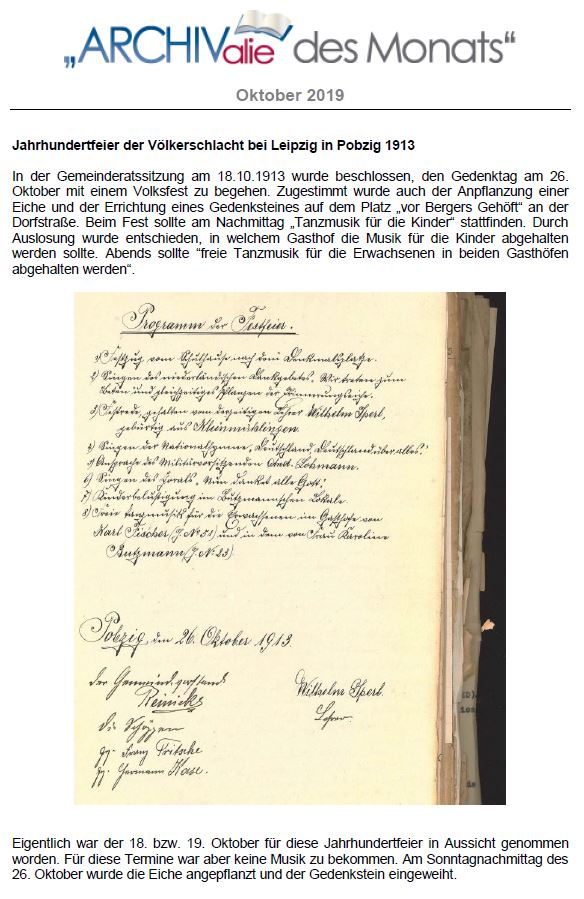 „ARCHIValie des Monats“
Oktober 2019
Jahrhundertfeier der Völkerschlacht bei Leipzig in Pobzig 1913
In der Gemeinderatssitzung am 18.10.1913 wurde beschlossen, den Gedenktag am 26.
Oktober mit einem Volksfest zu begehen. Zugestimmt wurde auch der Anpflanzung einer
Eiche und der Errichtung eines Gedenksteines auf dem Platz „vor Bergers Gehöft“ an der
Dorfstraße. Beim Fest sollte am Nachmittag „Tanzmusik für die Kinder“ stattfinden. Durch
Auslosung wurde entschieden, in welchem Gasthof die Musik für die Kinder abgehalten
werden sollte. Abends sollte “freie Tanzmusik für die Erwachsenen in beiden Gasthöfen
abgehalten werden“.
Programm der Festfeier.
1) Festzug vom Schulhause nach dem Denkmalsplatze.
2) Singen des niederländischen Dankgebetes, Wir treten zum
Beten und gleichzeitiges Pflanzen der Erinnerungseiche.
3) Festrede, gehalten vom derzeitigen Lehrer Wilhelm Sperl,
gebürtig aus Kleinmühlingen.
4) Singen der Nationalhymne „Deutschland, Deutschland über alles“.
5) Ansprache des Militärvorsitzenden Lohmann.
6) Singen des Chorals, Nun danket alle Gott!
7) Kinderbelustigung im Butzmannschen Lokale
8) Freie Tanzmusik für die Erwachsenen im Gasthofe von
Karl Fischer (J. No 51) und in dem von Frau Karoline
Butzmann (J. No 23)
Pobzig, den 26. Oktober 1913.
der Gemeindevorstand
Reinicke
Wilhelm Sperl.
Lehrer.
die Schöppen
gz. Franz Fritsche
gz. Hermann Kase.
Eigentlich war der 18. bzw. 19. Oktober für diese Jahrhundertfeier in Aussicht genommen
worden. Für diese Termine war aber keine Musik zu bekommen. Am Sonntagnachmittag des
26. Oktober wurde die Eiche angepflanzt und der Gedenkstein eingeweiht.